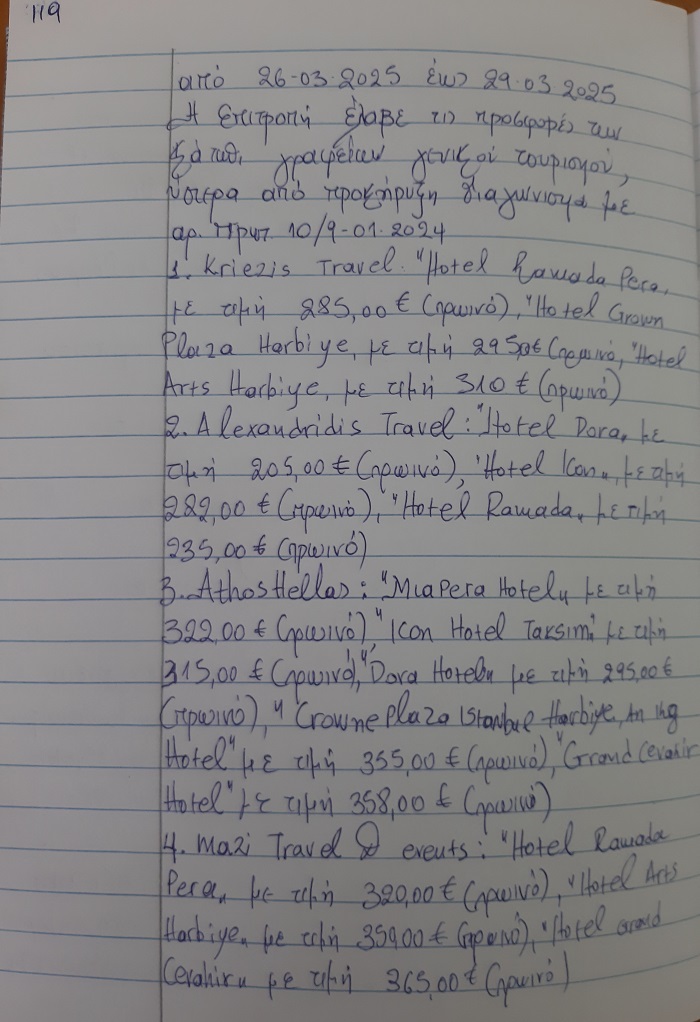 119
από 26-03-2025 έως 29-03-2025
Η Επιτροπή έλαβε τις προσφορές των
εξής γραφείων γενικού τουρισμού,
ύστερα από προκήρυξη διαγώνισμα με
αρ. πρωτ. 10/9-01-2024
1. Kriezis Travel. "Hotel Ramada Pera„
με τιμή 285,00 € (πρωινό), "Hotel Crown
Plaza Harbiye„ με τιμή 295,0€ (πρωινό, "Hotel
Arts Harbiye„ με τιμή 310 € (πρωινό)
2. Alexandridis Travel: "Hotel Dora„ με
τιμή 205,00 € (πρωινό), "Hotel Icon„ με τιμή
282,00 € (πρωινό), "Hotel Ramada„ με τιμή
235,00 € (πρωινό)
3. Athos Hellas: "Miapera Hotel„ με τιμή
322,00 € (πρωινό), "Icon Hotel Taksim" με τιμή
315,00 € (πρωινό), "Dora Hotel„ με τιμή 295,00 €
(πρωινό), "Crowne Plaza Istanbul Harbiye, An ihg
Hotel" με τιμή 355,00 € (πρωινό), "Grand Cevahir
Hotel" με τιμή 358,00 € (πρωινό)
4. Mazi Travel & events: "Hotel Ramada
Pera„ με τιμή 320,00 € (πρωινό), "Hotel Arts
Harbiye„ με τιμή 359,00 € (πρωινό), "Hotel Grand
Cevahir„ με τιμή 365,00 € (πρωινό)